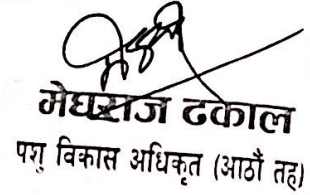 मेघराज ढकाल
पशु विकास अधिकृत (आठौं तह)